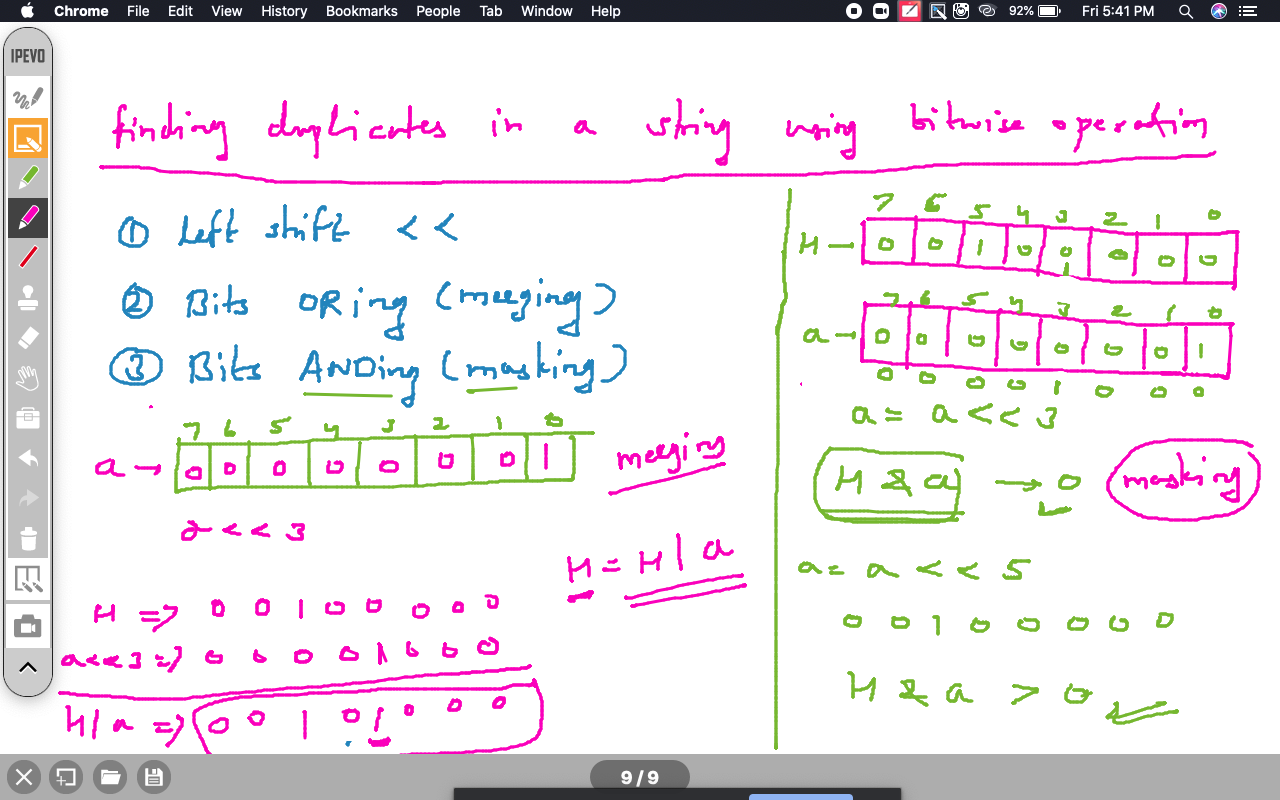 Chrome File Edit View History Bookmarks People Tab Window Help 92% Fri 5:41 PM
IPEVO
finding duplicates in a string using bitwise operation
① Left shift <<
② Bits ORing (merging)
③ Bits ANDing (masking)
7 6 5 4 3 2 1 0
a → 0 0 0 0 0 0 0 1
merging
2 << 3
H = H | a
H => 0 0 1 0 0 0 0 0
a<<3 => 0 0 0 0 1 0 0 0
H | a => 0 0 1 0 1 0 0 0
7 6 5 4 3 2 1 0
H → 0 0 1 0 0 0 0 0
1
7 6 5 4 3 2 1 0
a → 0 0 0 0 0 0 0 1
0 0 0 0 1 0 0 0
a = a << 3
H & a → 0 masking
a = a << 5
0 0 1 0 0 0 0 0
H & a > 0
9 / 9